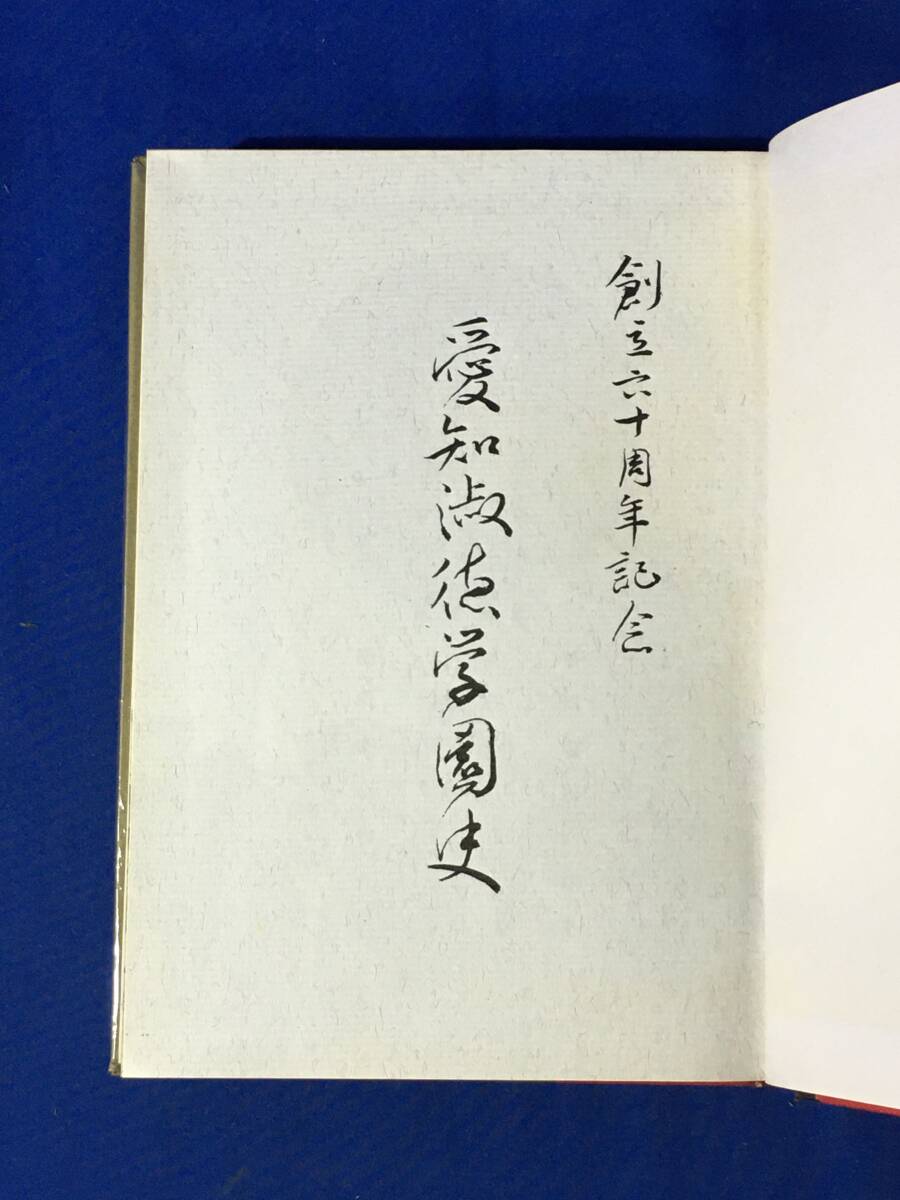 創立六十周年記念
愛知淑徳学園史